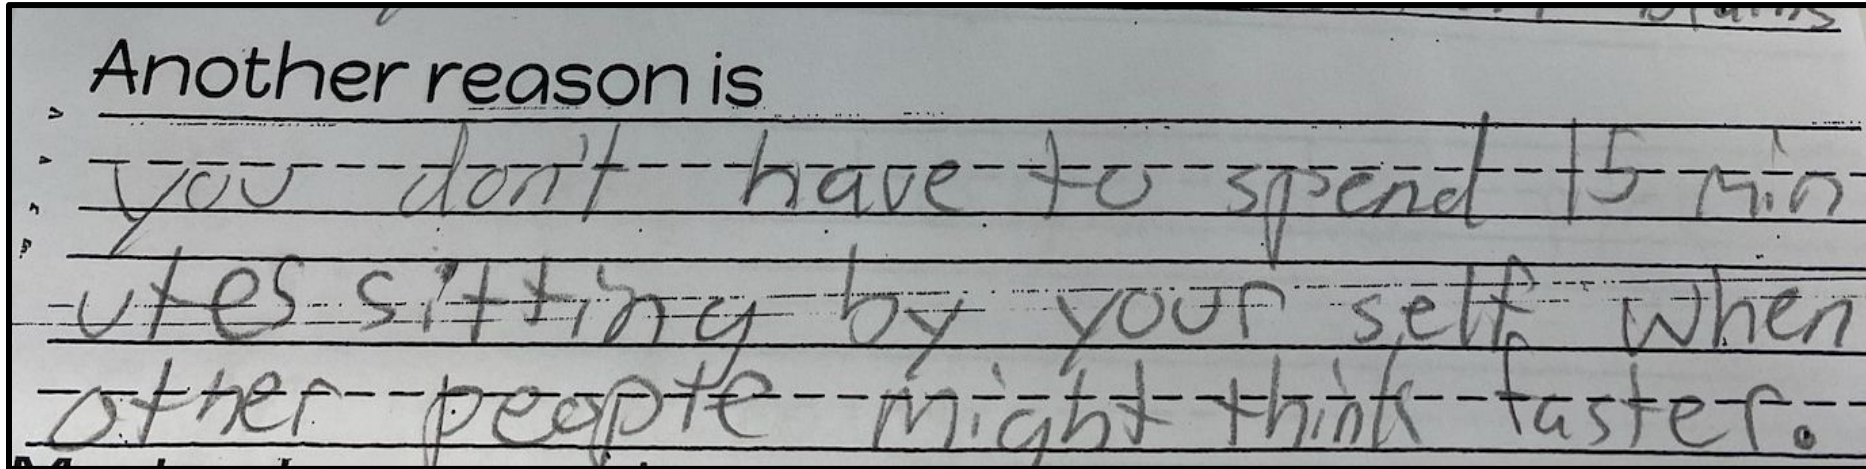 Another reason is
you don't have to spend 15 min
utes sitting by your self when
other people might think faster.